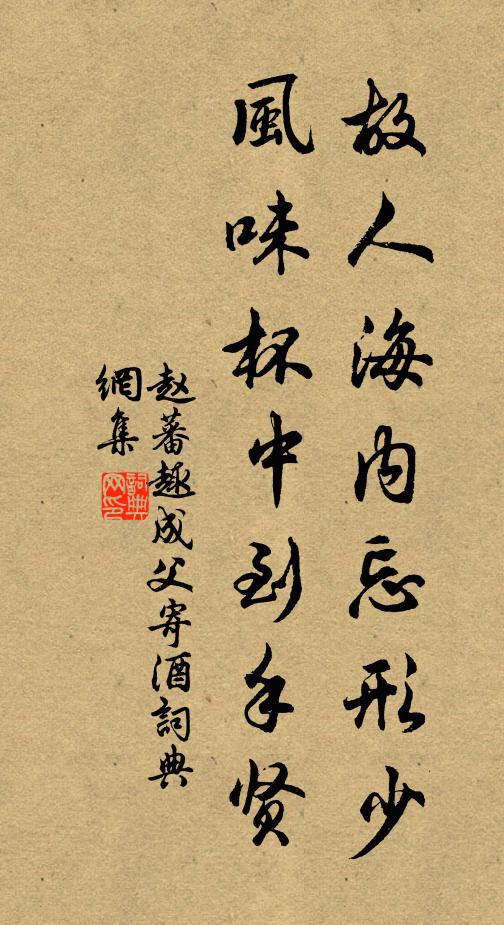 故人海内忘形少
風味杯中到手贤
赵蕃趣成父寄酒詞典
網集
詞典
网印